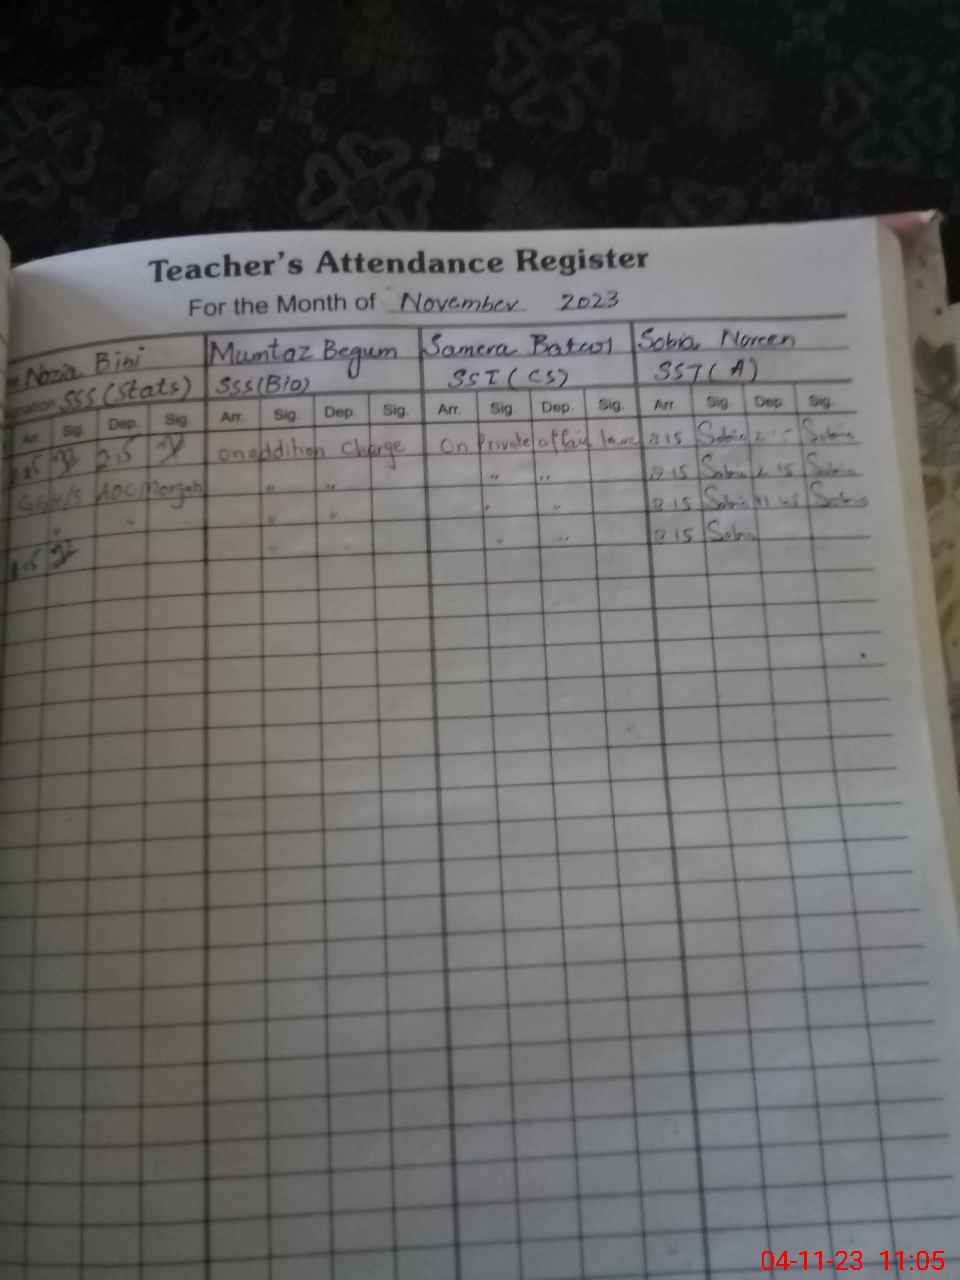 Teacher's Attendance Register
For the Month of November 2023
Nazia Bibi Mumtaz Begum Samera Batool Sobia Noreen
SSS (Stats) SSS (Bio) SST (CS) SST (A)
Arr. Sig. Dep. Sig. Arr. Sig. Dep. Sig. Arr. Sig. Dep. Sig. Arr. Sig. Dep. Sig.
2.5 on addition Charge On Private affair leave 8 15 Sobia Sobia
" " " " 8 15 Sobia 2 15 Sobia
" " " " " 8 15 Sobia Sobia
" " " 8 15 Sobia
04-11-23 11:05